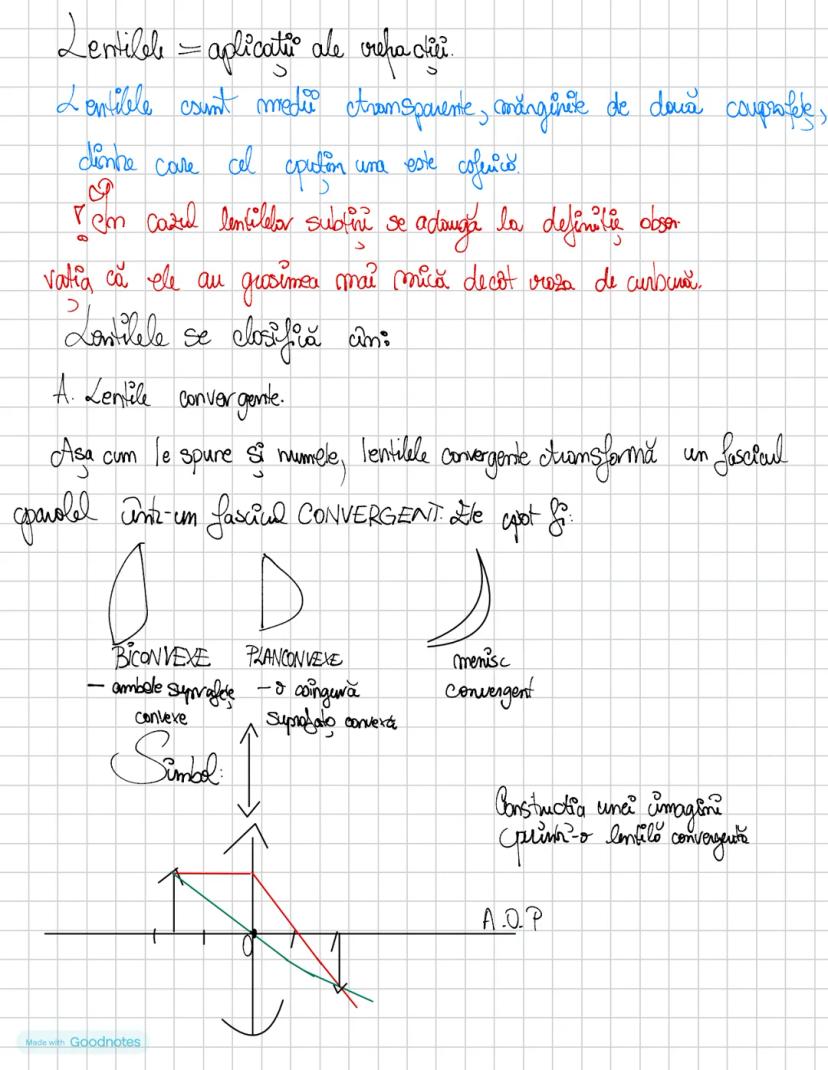 Lentilele = aplicații ale refracției.
Lentilele sunt medii transparente, mărginite de două suprafețe,
dintre care cel puțin una este sferică.
! În cazul lentilelor subțiri se adaugă la definiție obser-
vația că ele au grosimea mai mică decât raza de curbură.
Lentilele se clasifică în:
A. Lentile convergente.
Așa cum le spune și numele, lentilele convergente transformă un fascicul
paralel într-un fascicul CONVERGENT. Ele pot fi:
BICONVEXE PLANCONVEXE menisc
- ambele suprafețe - o singură convergent
convexe suprafață convexă
Simbol:
Construcția unei imagini
printr-o lentilă convergentă
A.O.P
O
Made with Goodnotes